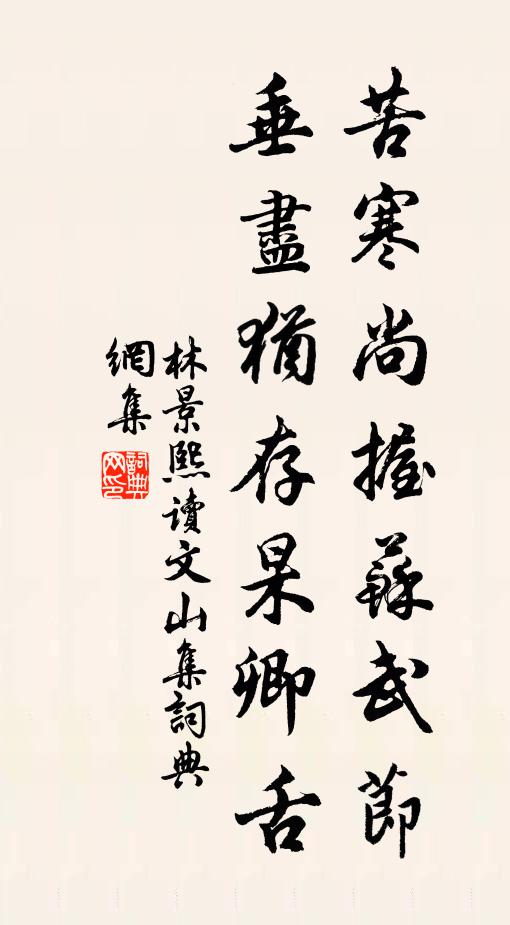 苦寒尚握蘇武節
垂盡猶存杲卿舌
林景熙讀文山集詞典
網集
詞典網印